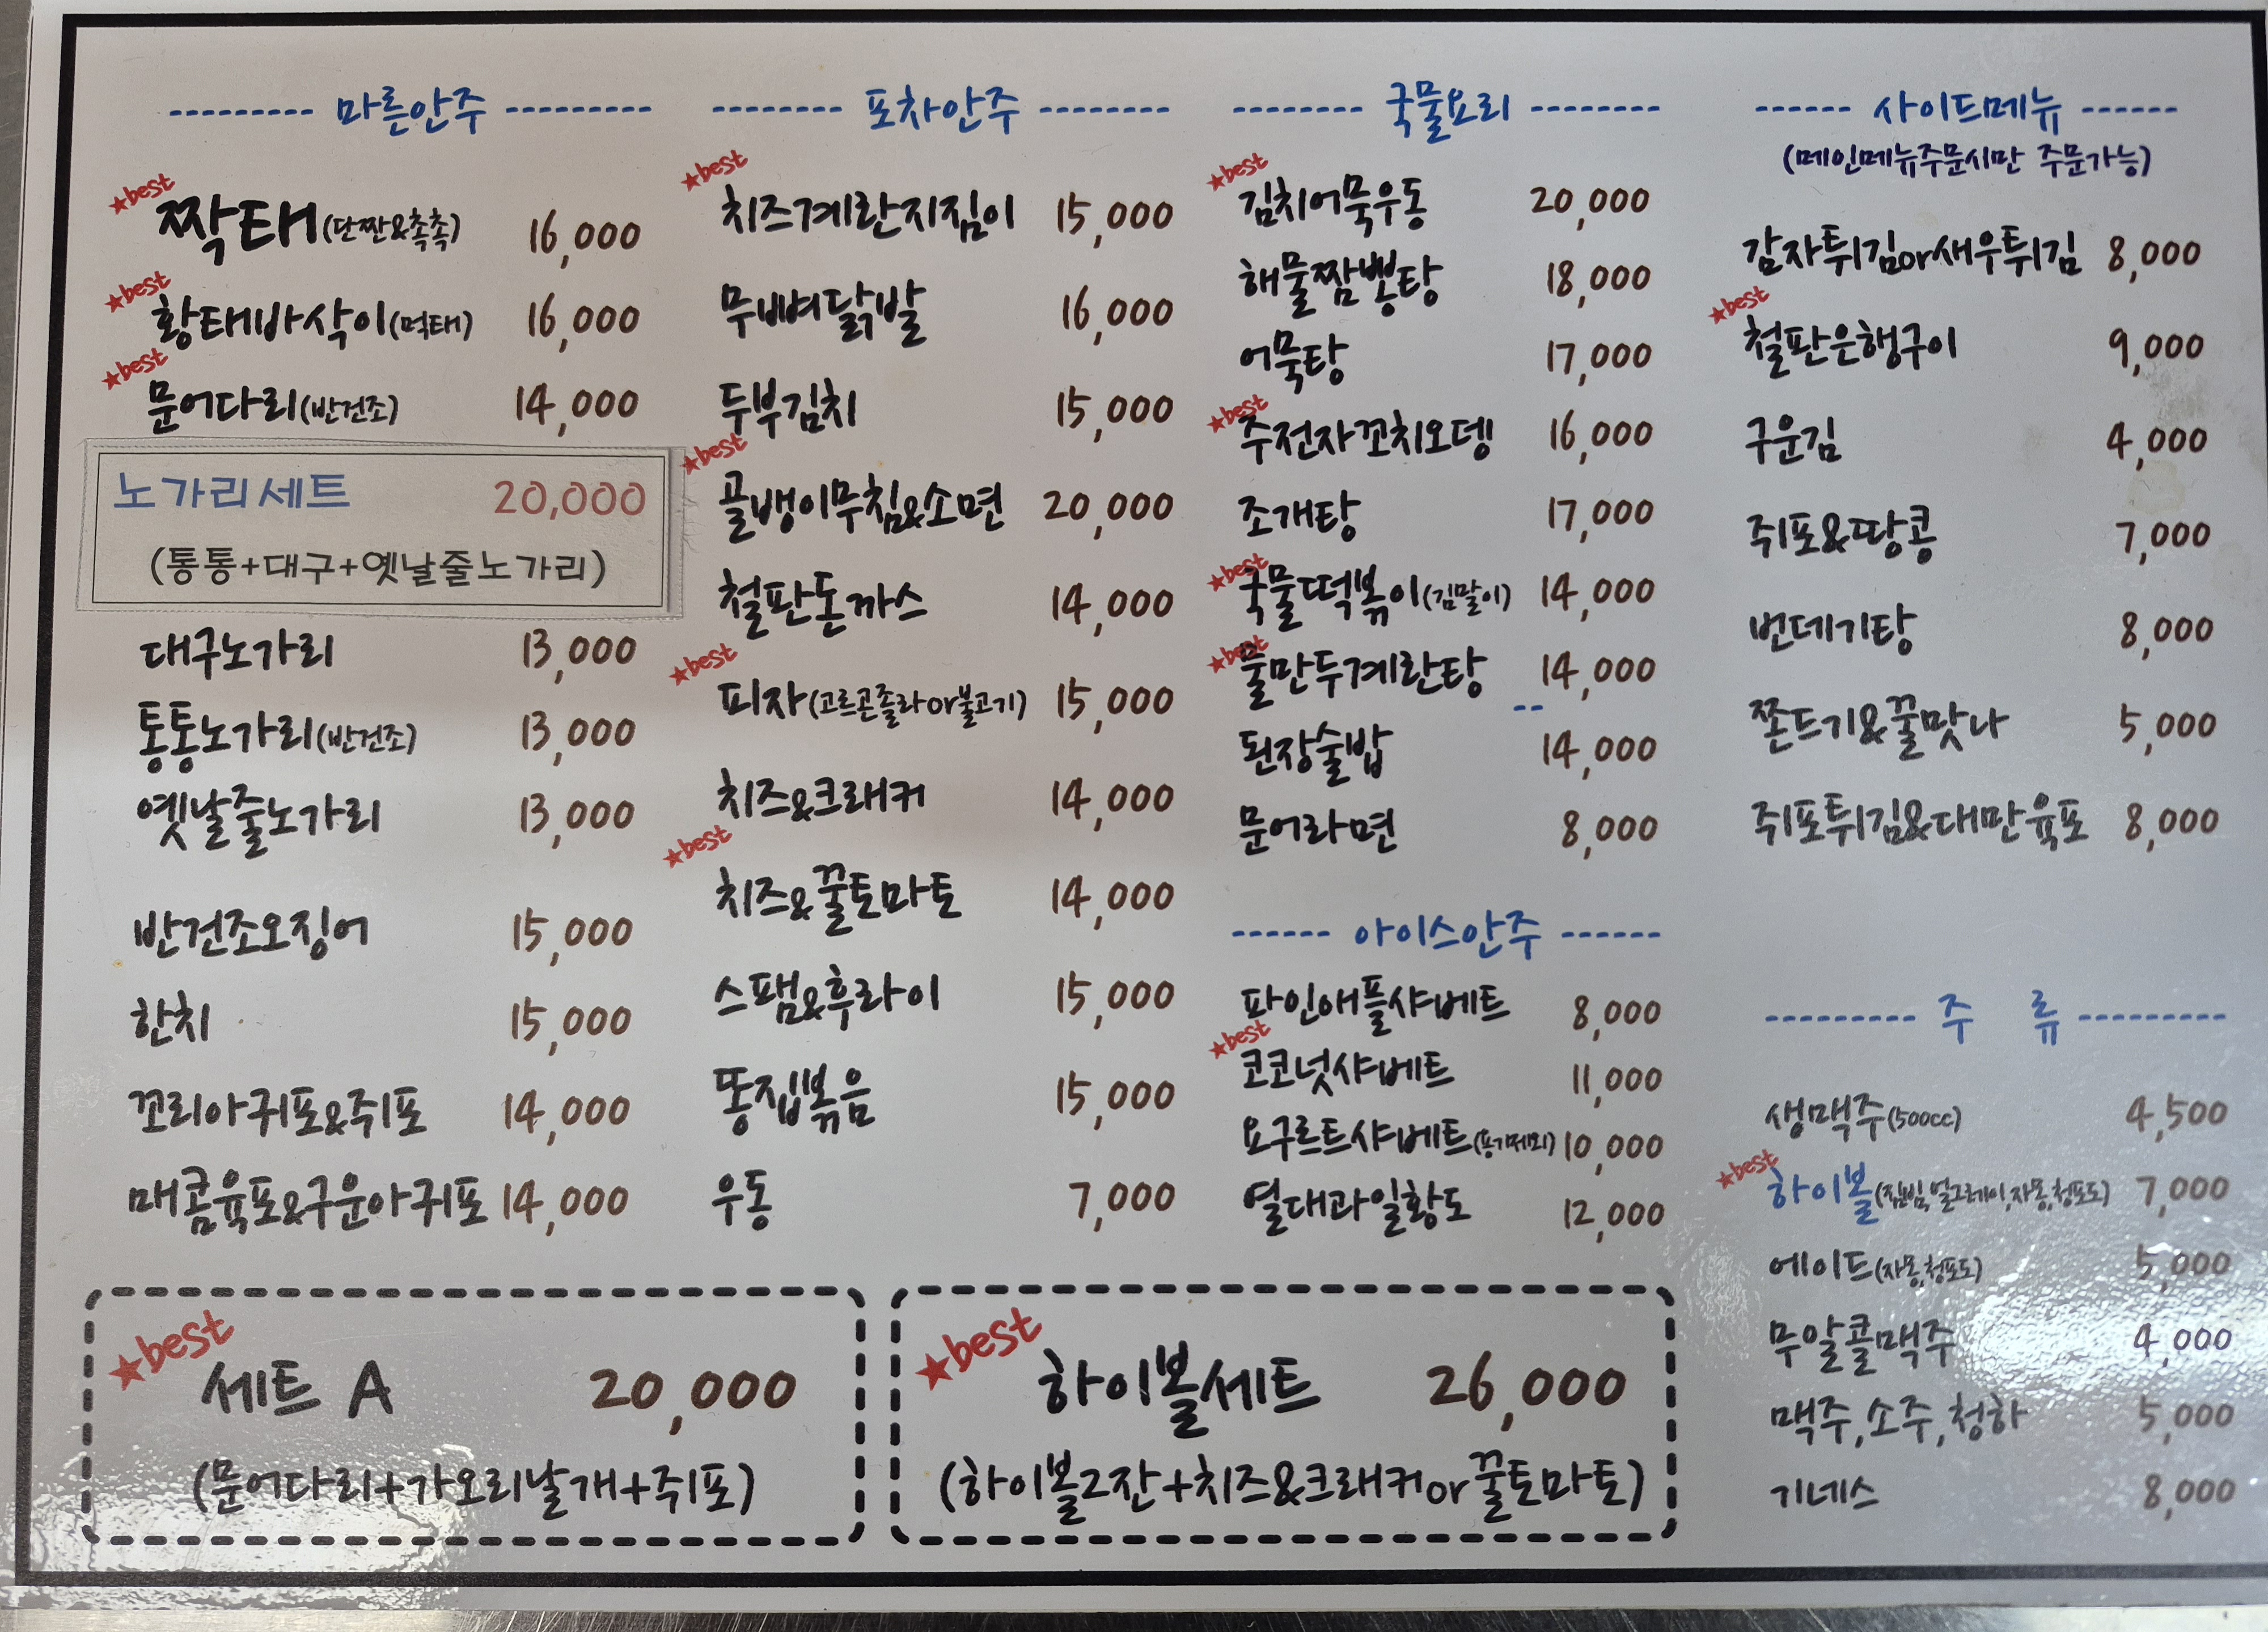 마른안주
★best
짝태(단짠&촉촉) 16,000
★best
황태바삭이(먹태) 16,000
★best
문어다리(반건조) 14,000
노가리세트 20,000
(통통+대구+옛날줄노가리)
대구노가리 13,000
통통노가리(반건조) 13,000
옛날줄노가리 13,000
반건조오징어 15,000
한치 15,000
꼬리아귀포&쥐포 14,000
매콤육포&구운아귀포 14,000
포차안주
★best
치즈계란지짐이 15,000
무뼈닭발 16,000
두부김치 15,000
★best
골뱅이무침&소면 20,000
철판돈까스 14,000
★best
피자(고르곤졸라or불고기) 15,000
치즈&크래커 14,000
★best
치즈&꿀토마토 14,000
스팸&후라이 15,000
똥집볶음 15,000
우동 7,000
국물요리
★best
김치어묵우동 20,000
해물짬뽕탕 18,000
어묵탕 17,000
★best
주전자꼬치오뎅 16,000
조개탕 17,000
★best
국물떡볶이(김말이) 14,000
★best
물만두계란탕 14,000
된장술밥 14,000
문어라면 8,000
아이스안주
파인애플샤베트 8,000
★best
코코넛샤베트 11,000
요구르트샤베트(용기제외) 10,000
열대과일황도 12,000
사이드메뉴
(메인메뉴주문시만 주문가능)
감자튀김or새우튀김 8,000
★best
철판은행구이 9,000
구운김 4,000
쥐포&땅콩 7,000
번데기탕 8,000
쫀드기&꿀맛나 5,000
쥐포튀김&대만육포 8,000
주 류
생맥주(500cc) 4,500
★best
하이볼(짐빔,얼그레이,자몽,청포도) 7,000
에이드(자몽,청포도) 5,000
무알콜맥주 4,000
맥주,소주,청하 5,000
기네스 8,000
★best
세트 A 20,000
(문어다리+가오리날개+쥐포)
★best
하이볼세트 26,000
(하이볼2잔+치즈&크래커or꿀토마토)